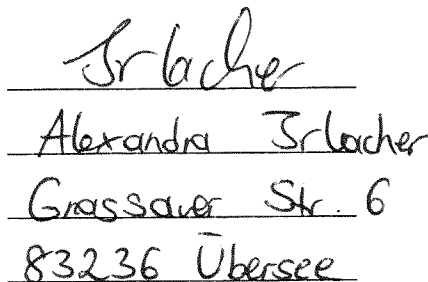 Irlacher
Alexandra Irlacher
Grassauer Str. 6
83236 Übersee